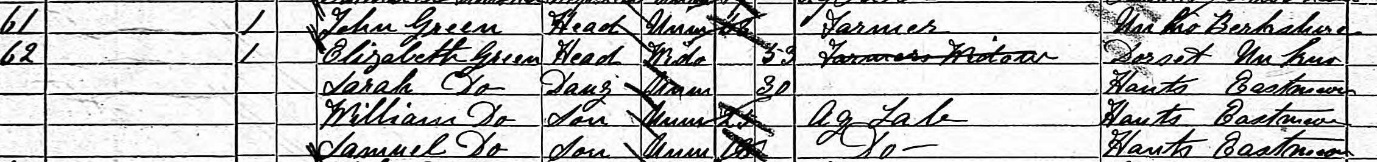 61 1 John Green Head Unm Farmer Berkshire
62 1 Elizabeth Green Head Wido 53 Farmers Widow Dorset
Sarah Do Daug Unm 30 Hants Eastmeon
William Do Son Unm Ag Lab Hants Eastmeon
Samuel Do Son Unm Do Hants Eastmeon